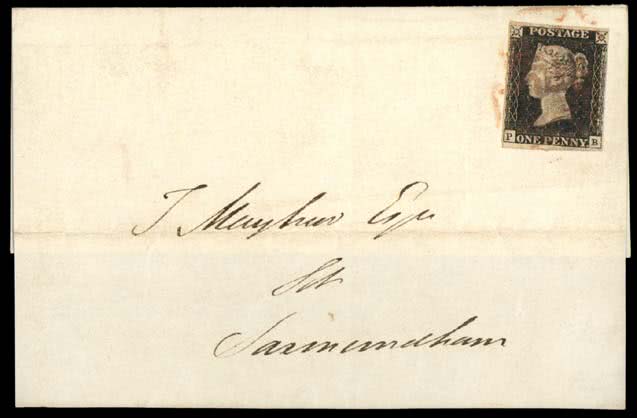 POSTAGE
P ONE PENNY B
J Mayhew Esqr
Saxmundham